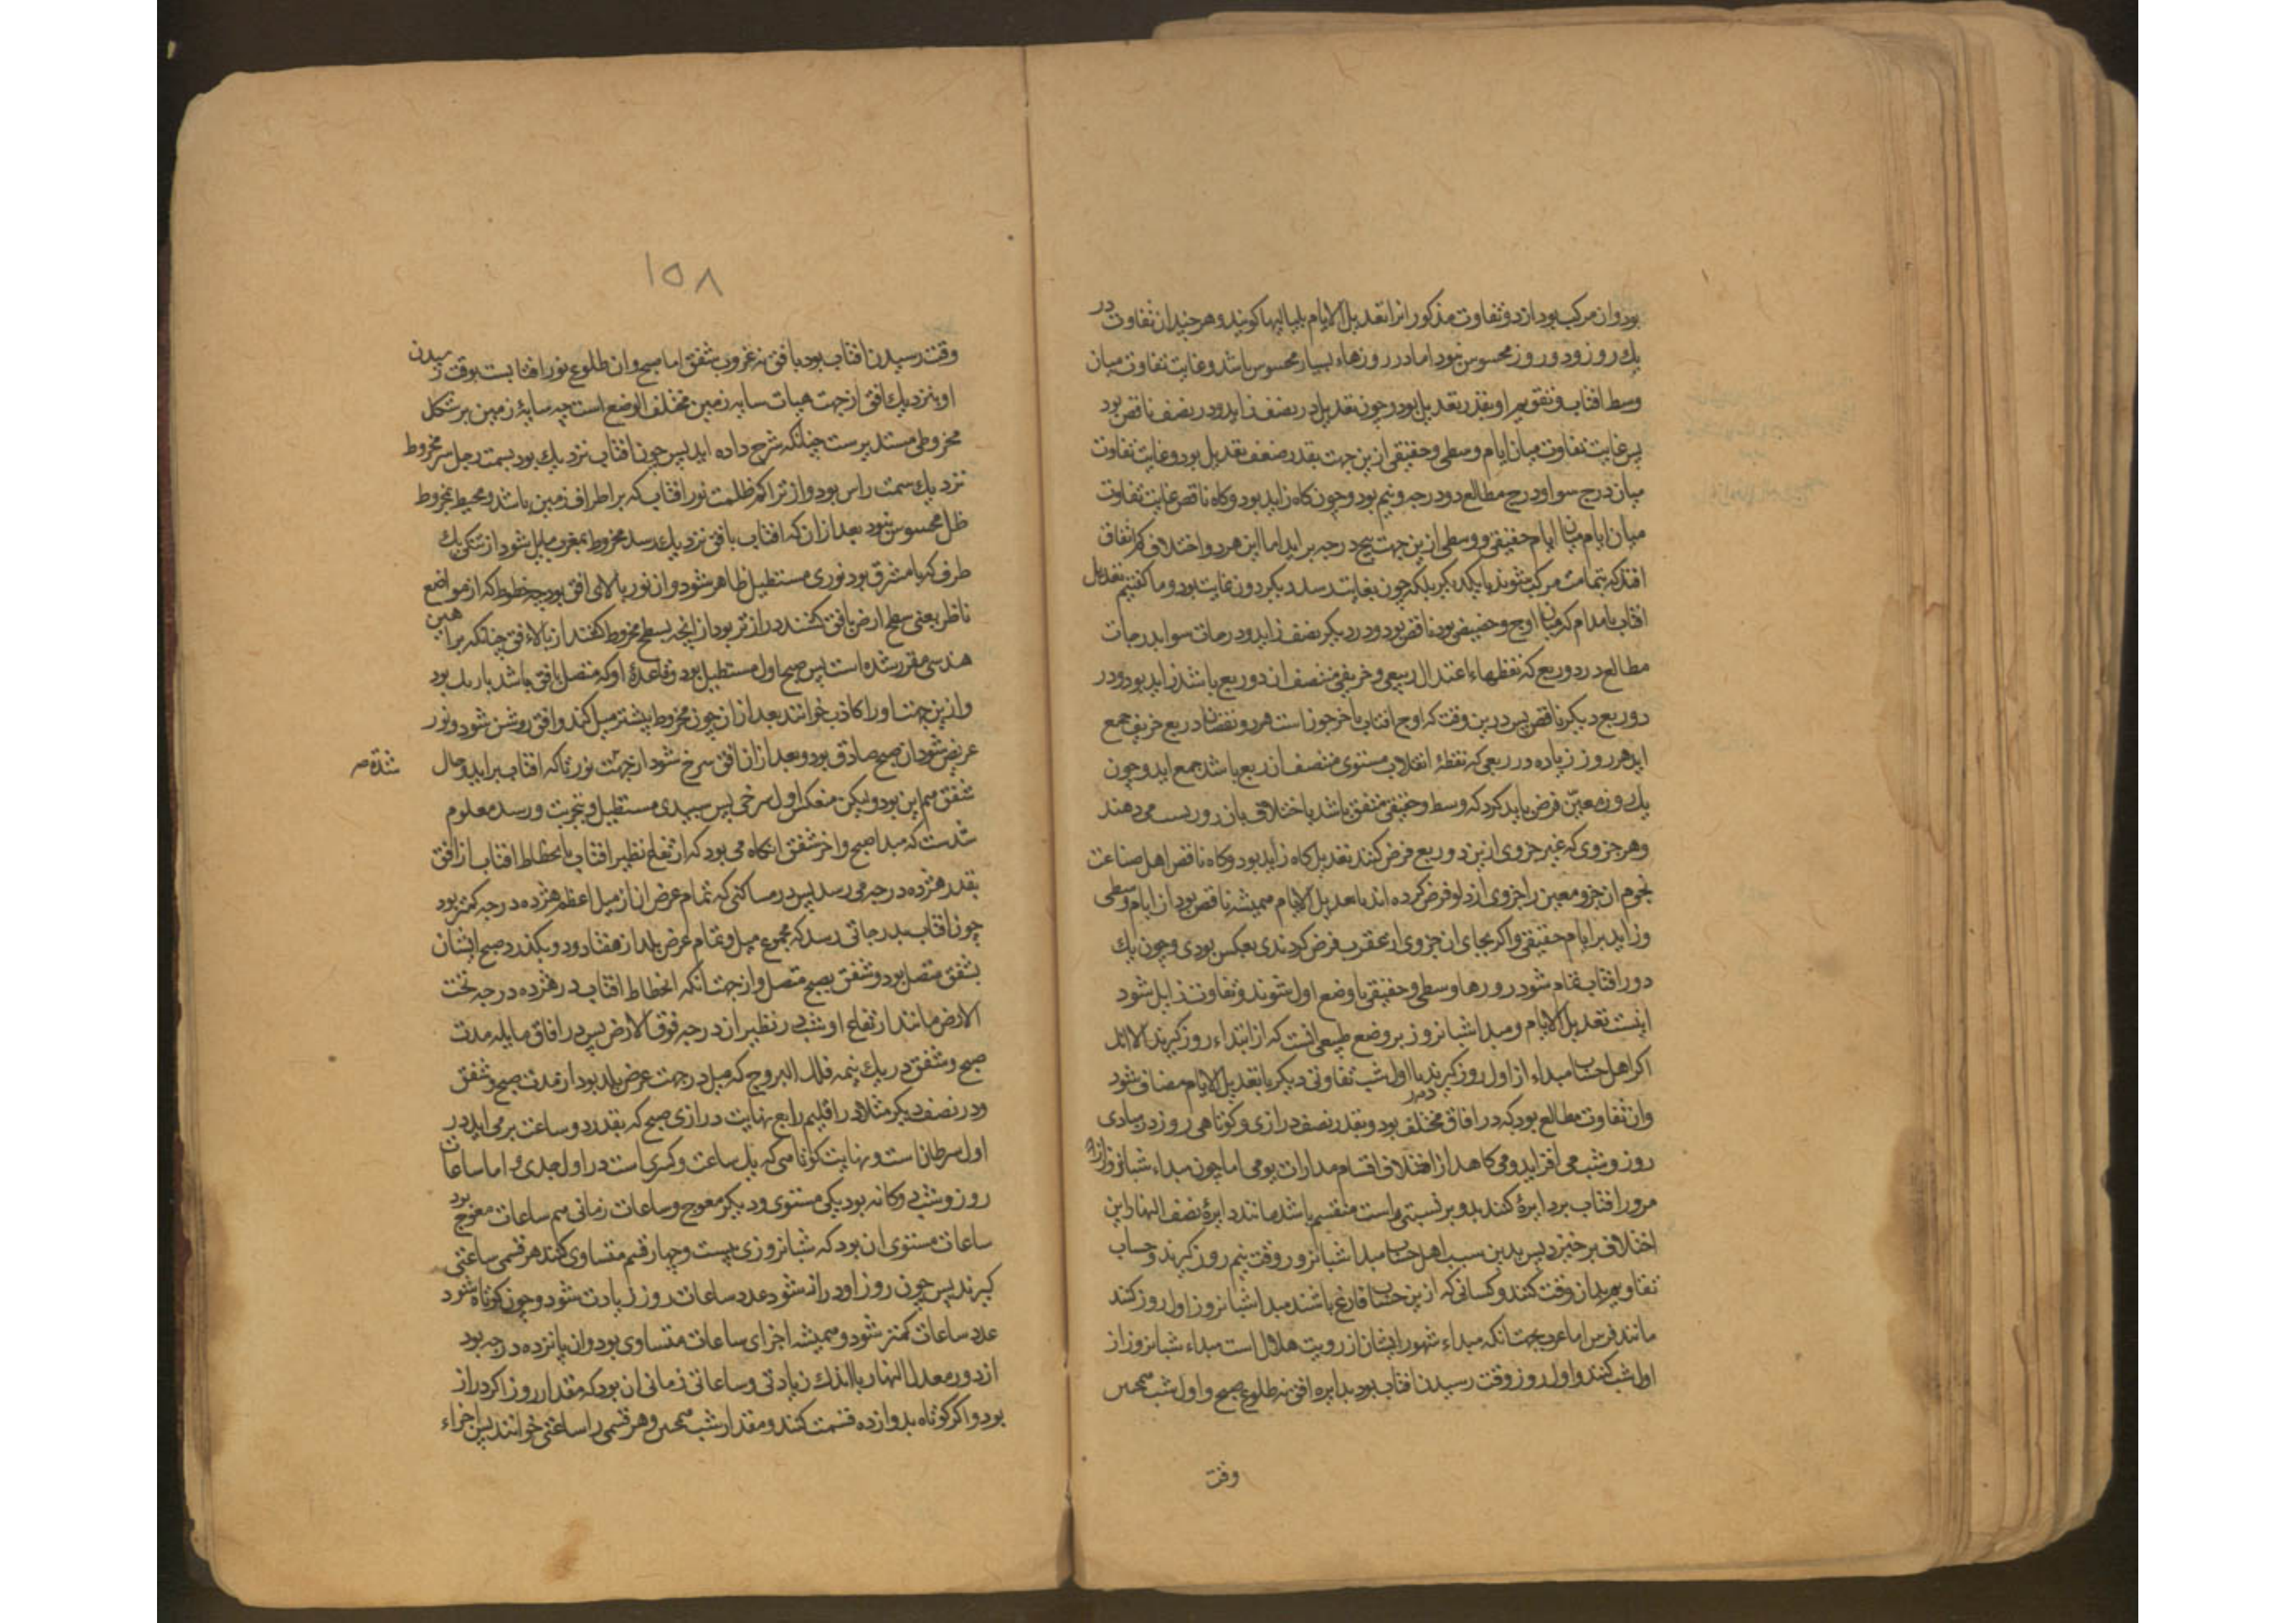 بود و ان مرکب بود از دو تفاوت مذکور انرا تعدیل الایام بلیالیها کویند و هر چند این تفاوت در
یک روز و دو روز محسوس نبود اما در روزهاء بسیار محسوس باشد و غایت تفاوت میان
وسط افتاب و تقویم او بقدر تعدیل بود و چون تعدیل در نصف زاید و در نصف ناقص بود
پس غایت تفاوت میان ایام وسطی و حقیقی ازین جهت بقدر ضعف تعدیل بود و غایت تفاوت
میان درج سوا و درج مطالع دو درجه و نیم بود و چون کاه زاید بود و کاه ناقص غایت تفاوت
میان ایام حقیقی و وسطی ازین جهت پنج درجه براید اما این هر دو اختلاف کم اتفاق
افتد که بتمامت مرکب شوند با یکدیکر بلکه چون بغایت رسد دیکر دون غایت بود و ما کفتیم تعدیل
افتاب مادام که میان اوج و حضیض بود ناقص بود و در دیکر نصف زاید و درجات سوا بدرجات
مطالع در دو ربع که نقطهاء اعتدال ربیعی و خریفی منتصف ان دو ربع باشد زاید بود و در
دو ربع دیکر ناقص پس درین وقت که اوج افتاب باخر جوزاست هر دو نقصان در ربع خریفی جمع
اید هر روز زیاده در ربعی که نقطهٔ انقلاب مستوی منتصف ان ربع باشد جمع اید و چون
یک روز معین فرض باید کرد که وسط و حقیقی متفق باشد با اختلاف بان روز نسبت می دهند
و هر جزوی که غیر جزوی ازین دو ربع فرض کنند تعدیل کاه زاید بود و کاه ناقص اهل صناعت
نجوم ان جزو معین را جزوی از دلو فرض کرده اند تا تعدیل الایام همیشه ناقص بود از ایام وسطی
و زاید بر ایام حقیقی و اکر بجای ان جزوی از عقرب فرض کردندی بعکس بودی و چون یک
دور افتاب تمام شود روزها وسطی و حقیقی با وضع اول شوند و تفاوت زایل شود
اینست تعدیل الایام و مبدا شبانروز بر وضع طبیعی انست که از ابتداء روز کیرند الا انک
اکر اهل حساب مبداء از اول روز کیرند یا اول شب تفاوتی دیکر با تعدیل الایام مضاف شود
و ان تفاوت مطالع بود که در افاق مختلف بود و بقدر نصف درازی و کوتاهی روز در مبادی
روز و شب می افزاید و می کاهد از اختلاف اقسام مدارات یومی اما چون مبداء شبانروز از
مرور افتاب بر دایرهٔ کنند که بدو بر نسبتی راست منقسم باشد مانند دایرهٔ نصف النهار این
اختلاف برخیزد پس بدین سبب اهل حساب مبدا شبانروز وقت نیم روز کیرند و حساب
تقاویم بدان وقت کنند و کسانی که ازین حساب فارغ باشند مبدا شبانروز اول روز کنند
مانند فرس اما عرب بجهت انکه مبداء شهور ایشان از رویت هلال است مبداء شبانروز از
اول شب کنند و اول روز وقت رسیدن افتاب بود بدایره افق نه طلوع صبح و اول شب همچنین
وقت
۱۵۸
وقت رسیدن افتاب بود بافق نه غروب شفق اما صبح و ان طلوع نور افتابست بوقت رسیدن
او بنزدیک افق از جهت هیات سایه زمین مختلف الوضع است چه سایهٔ زمین بر شکل
مخروطی مستدیرست چنانکه شرح داده اید پس چون افتاب نزدیک بود بسمت رجل سر مخروط
نزدیک سمت راس بود و از تراکم ظلمت نور افتاب که بر اطراف زمین باشد و محیط بمخروط
ظل محسوس نبود بعد ازان که افتاب بافق نزدیک رسد مخروط بمغرب مایل شود از یک
طرف که با مشرق بود نوری مستطیل ظاهر شود و ان نور بالای افق بود چه خطوط که از مواضع
ناظر یعنی سطح ارض بافق کشند درازتر بود از انچه بسطح مخروط کشند از بالاء افق چنانکه براهین
هندسی مقرر شده است پس صبح اول مستطیل بود و قاعدهٔ او که متصل بافق باشد باریک بود
و ازین جهت او را کاذب خوانند بعد ازان چون مخروط بیشتر میل کند و افق روشن شود و نور
عریض شود ان صبح صادق بود و بعد ازان افق سرخ شود از جهت نور تا که افتاب براید و حال
شده صـ
شفق هم این بود و لیکن منعکس اول سرخی پس سپیدی مستطیل و بتجربت و رصد معلوم
شدست که مبدا صبح و اخر شفق انکاه می بود که ارتفاع نظیر افتاب یا انحطاط افتاب از افق
بقدر هژده درجه می رسد پس در مساکنی که تمام عرض ان از میل اعظم هژده درجه کمتر بود
چون افتاب بدرجاتی رسد که مجموع میل و تمام عرض بلد از هفتاد و دو بکذرد صبح ایشان
بشفق متصل بود و شفق بصبح متصل و از جهت انکه انحطاط افتاب در هژده درجه تحت
الارض مانند ارتفاع او شب در نظیر ان درجه فوق الارض پس در افاق مایله مدت
صبح و شفق در یک نیمه فلک البروج که میل در جهت عرض بلد بود از مدت صبح و شفق
و در نصف دیکر مثلا در اقلیم رابع نهایت درازی صبح که بقدر دو ساعت بر می اید در
اول سرطان است و نهایت کوتاهی که یک ساعت و کسری است در اول جدی و اما ساعات
روز و شب دوکانه بود یکی مستوی و دیکر معوج و ساعات زمانی هم ساعات معوج بود
ساعات مستوی ان بود که شبانروزی بیست و چهار قسم متساوی کنند هر قسمی ساعتی
کیرند پس چون روز او دراز شود عدد ساعات روز زیادت شود و چون کوتاه شود
عدد ساعات کمتر شود و همیشه اجزای ساعات متساوی بود و ان پانزده درجه بود
از دور معدل النهار با اندک زیادتی و ساعاتی زمانی ان بود که مقدار روز اکر دراز
بود و اکر کوتاه بدوازده قسمت کنند و مقدار شب همچنین و هر قسمی را ساعتی خوانند پس اجزاء